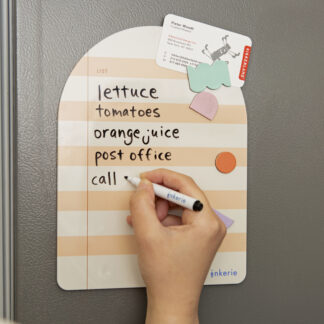 LIST
lettuce
tomatoes
orange juice
post office
call
inkerie
inkerie